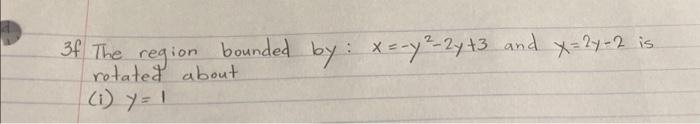 3f The region bounded by: x=-y²-2y+3 and x=2y-2 is
rotated about
(i) y=1